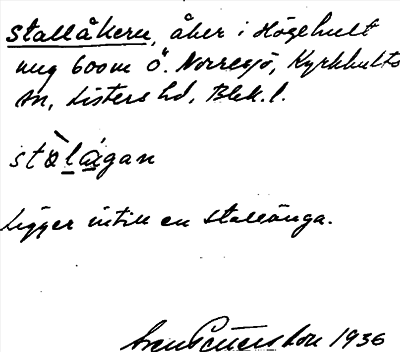 Stallåkern, åker i Högehult
mug 600 m Ö. Norresjö, Kyrkhults
sn, Listers hd, Blek. l.
stàlágan
Ligger intill en stallänga.
Sven Petersson 1936